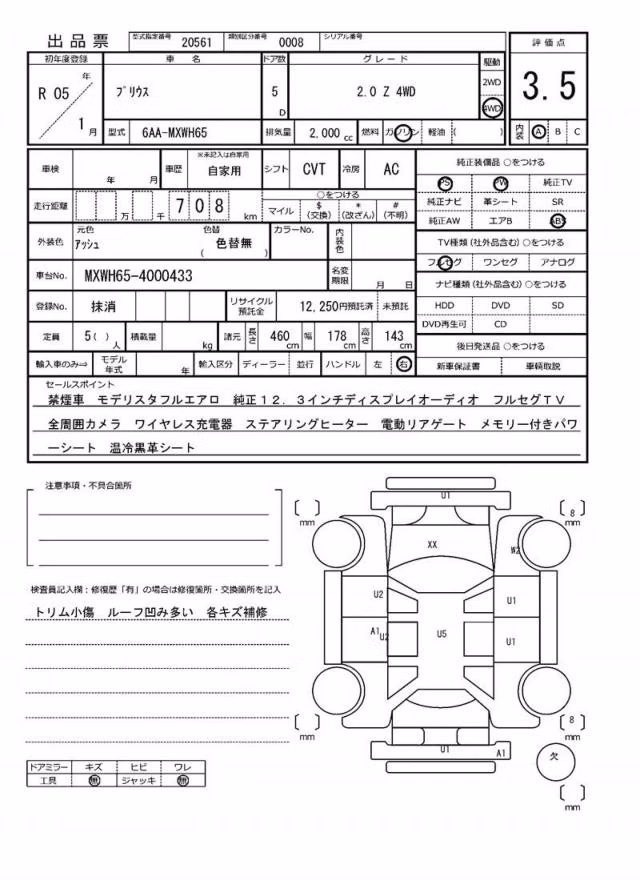 出品票 型式指定番号 20561 類別区分番号 0008 シリアル番号
評価点
3.5
初年度登録 車名 ドア数 グレード 駆動
R 05 年 1 月 プリウス 5 D 2.0 Z 4WD 2WD 4WD
型式 6AA-MXWH65 排気量 2,000 cc 燃料 ガソリン 軽油 ( )
内装 A B C
車検 年 月 車歴 ※未記入は自家用 自家用 シフト CVT 冷房 AC
走行距離 万 千 7 0 8 km ○をつける
マイル $(交換) *(改ざん) #(不明)
外装色 元色 アッシュ 色替 ( 色替無 ) カラーNo. 内装色
車台No. MXWH65-4000433 名変期限 月 日
登録No. 抹消 リサイクル預託金 12,250円預託済 未預託
定員 5( ) 人 積載量 kg 諸元 長さ 460 cm 幅 178 cm 高さ 143 cm
輸入車のみ⇒ モデル年式 年 輸入区分 ディーラー 並行 ハンドル 左 右
純正装備品 ○をつける
PS PW 純正TV
純正ナビ 革シート SR
純正AW エアB ABS
TV種類 (社外品含む) ○をつける
フルセグ ワンセグ アナログ
ナビ種類 (社外品含む) ○をつける
HDD DVD SD
DVD再生可 CD
後日発送品 ○をつける
新車保証書 車輌取説
セールスポイント
禁煙車 モデリスタフルエアロ 純正12.3インチディスプレイオーディオ フルセグTV
全周囲カメラ ワイヤレス充電器 ステアリングヒーター 電動リアゲート メモリー付きパワ
ーシート 温冷黒革シート
注意事項・不具合箇所
検査員記入欄：修復歴「有」の場合は修復箇所・交換箇所を記入
トリム小傷 ルーフ凹み多い 各キズ補修
ドアミラー キズ ヒビ ワレ
工具 無 ジャッキ 無
U1
[ ] mm [ 8 ] mm
XX W2
U2 U1
A1 U2 U5 U1
[ ] mm [ 8 ] mm
U1 A1 欠
[ ] mm